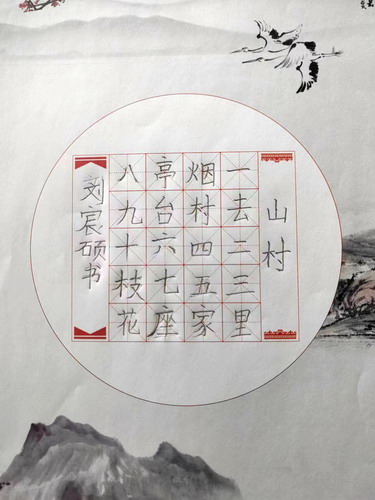 山村
一去二三里
烟村四五家
亭台六七座
八九十枝花
刘宸硕书